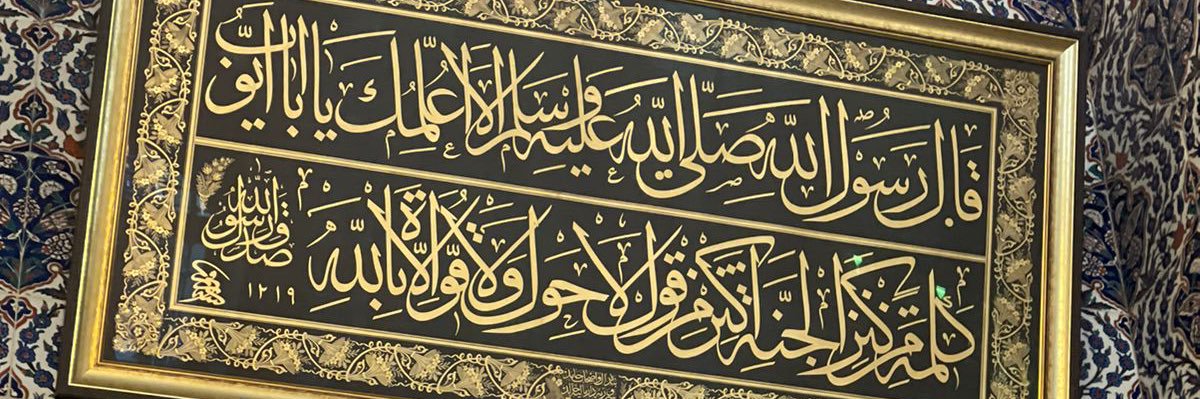 قال رسول الله صلى الله عليه وسلم ألا أعلمك يا أبا أيوب
كلمة من كنز الجنة أكثر من قول لا حول ولا قوة إلا بالله
صدق رسول الله
١٢١٩